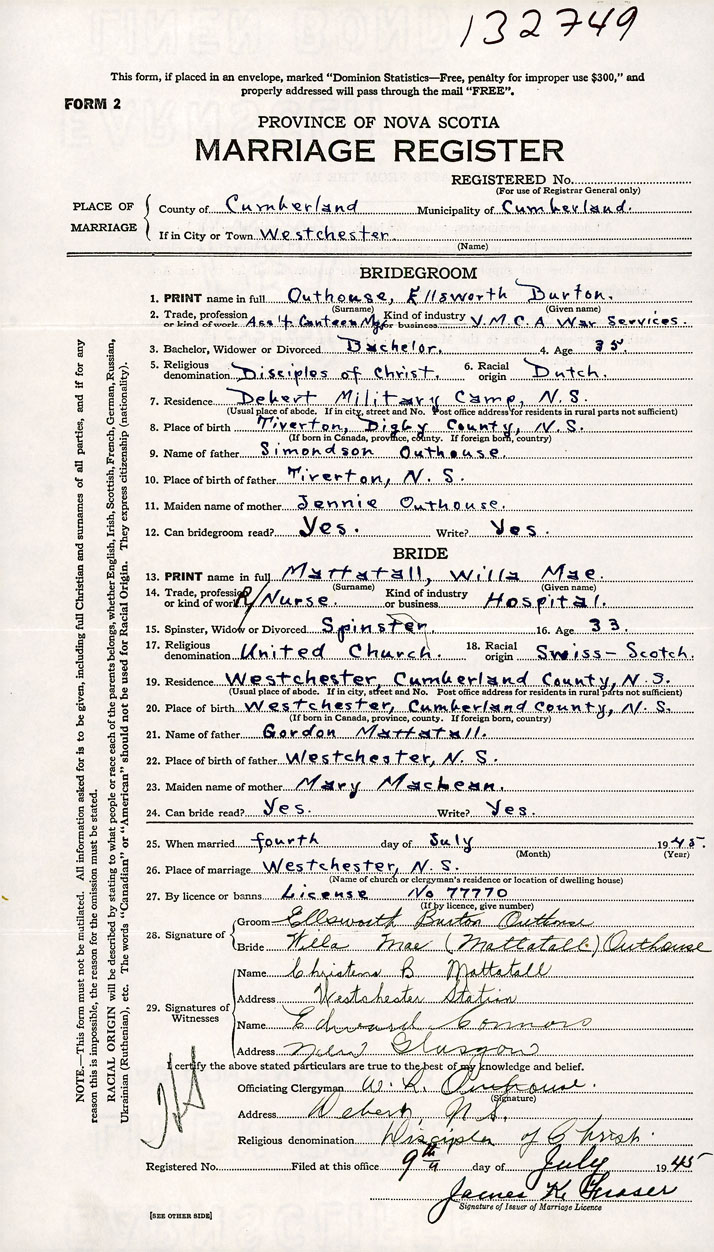 132749
This form, if placed in an envelope, marked "Dominion Statistics—Free, penalty for improper use $300," and
properly addressed will pass through the mail "FREE".
FORM 2
PROVINCE OF NOVA SCOTIA
MARRIAGE REGISTER
REGISTERED No.
(For use of Registrar General only)
PLACE OF MARRIAGE
County of Cumberland Municipality of Cumberland.
If in City or Town Westchester.
(Name)
BRIDEGROOM
1. PRINT name in full Outhouse, Ellsworth Burton.
(Surname) (Given name)
2. Trade, profession or kind of work Ass't Canteen Mgr Kind of industry or business Y.M.C.A War Services.
3. Bachelor, Widower or Divorced Bachelor. 4. Age 35.
5. Religious denomination Disciples of Christ. 6. Racial origin Dutch.
7. Residence Debert Military Camp, N.S.
(Usual place of abode. If in city, street and No. Post office address for residents in rural parts not sufficient)
8. Place of birth Tiverton, Digby County, N.S.
(If born in Canada, province, county. If foreign born, country)
9. Name of father Simondson Outhouse.
10. Place of birth of father Tiverton, N.S.
11. Maiden name of mother Jennie Outhouse.
12. Can bridegroom read? Yes. Write? Yes.
BRIDE
13. PRINT name in full Mattatall, Willa Mae.
(Surname) (Given name)
14. Trade, profession or kind of work R/Nurse. Kind of industry or business Hospital.
15. Spinster, Widow or Divorced Spinster. 16. Age 33.
17. Religious denomination United Church. 18. Racial origin Swiss-Scotch.
19. Residence Westchester, Cumberland County, N.S.
(Usual place of abode. If in city, street and No. Post office address for residents in rural parts not sufficient)
20. Place of birth Westchester, Cumberland County, N.S.
(If born in Canada, province, county. If foreign born, country)
21. Name of father Gordon Mattatall.
22. Place of birth of father Westchester, N.S.
23. Maiden name of mother Mary MacLean.
24. Can bride read? Yes. Write? Yes.
25. When married fourth day of July 1945.
(Month) (Year)
26. Place of marriage Westchester, N.S.
(Name of church or clergyman's residence or location of dwelling house)
27. By licence or banns License No 77770
(If by licence, give number)
28. Signature of
Groom Ellsworth Burton Outhouse
Bride Willa Mae (Mattatall) Outhouse
29. Signatures of Witnesses
Name Christena B Mattatall
Address Westchester Station
Name Edward Connors
Address New Glasgow
I certify the above stated particulars are true to the best of my knowledge and belief.
Officiating Clergyman Outhouse.
(Signature)
Address Debert, N.S.
Religious denomination Disciples of Christ.
Registered No. Filed at this office 9th day of July 1945
James K. Fraser
Signature of Issuer of Marriage Licence
[SEE OTHER SIDE]
NOTE.—This form must not be mutilated. All information asked for is to be given, including full Christian and surnames of all parties, and if for any
reason this is impossible, the reason for the omission must be stated.
RACIAL ORIGIN will be described by stating to what people or race each of the parents belongs, whether English, Irish, Scottish, French, German, Russian,
Ukrainian (Ruthenian), etc. The words "Canadian" or "American" should not be used for Racial Origin. They express citizenship (nationality).